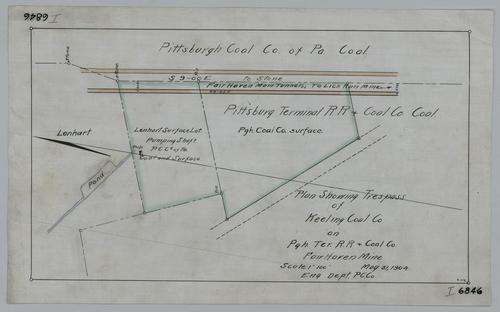 I 6846
Pittsburgh Coal Co. of Pa Coal.
S 9-00 E To Stone
Fair Haven Main Tunnels, To Lick Run Mine
Pittsburg Terminal R.R & Coal Co. Coal.
Pgh. Coal Co. surface.
Lenhart
Lenhart Surface Lot
Pumping Shaft
P.C.Co of Pa
Coal and Surface
Pond
Plan Showing Trespass
of
Keeling Coal Co
on
Pgh. Ter. R.R & Coal Co.
Fair Haven Mine
Scale 1"100' May 23, 1904
Eng Dept. P.C.Co.
I 6846